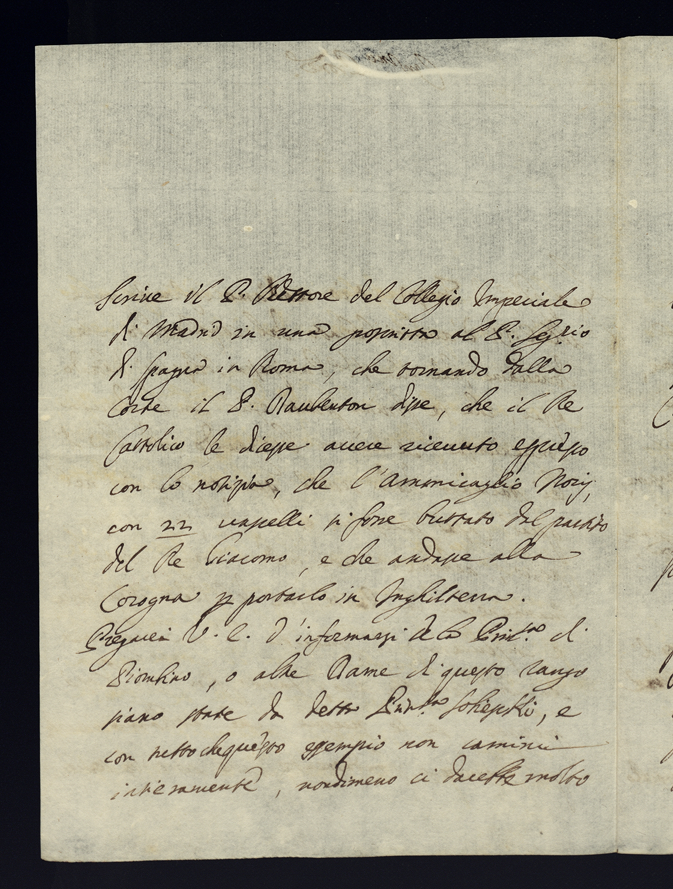 Scrive il P. Rettore del Collegio Imperiale
di Madrid in una poscritta al P. Seg.rio
di Spagna in Roma, che tornando dalla
Corte il P. Daubenton disse, che il Re
Cattolico le disse avere ricevuto espresso
con la notizia, che l'Ammiraglio Noris
con 22 vascelli si fosse buttato dal partito
del Re Giacomo, e che andasse alla
Corogna p portarlo in Inghilterra.
Pregarei V. E. d'informarsi se la Prin.sa di
Piombino, o altre Dame di questo rango
siano state da detta Prin.sa Sobieski, e
con tutto che questo essempio non camini
intieramente, nondimeno ci darebbe molto